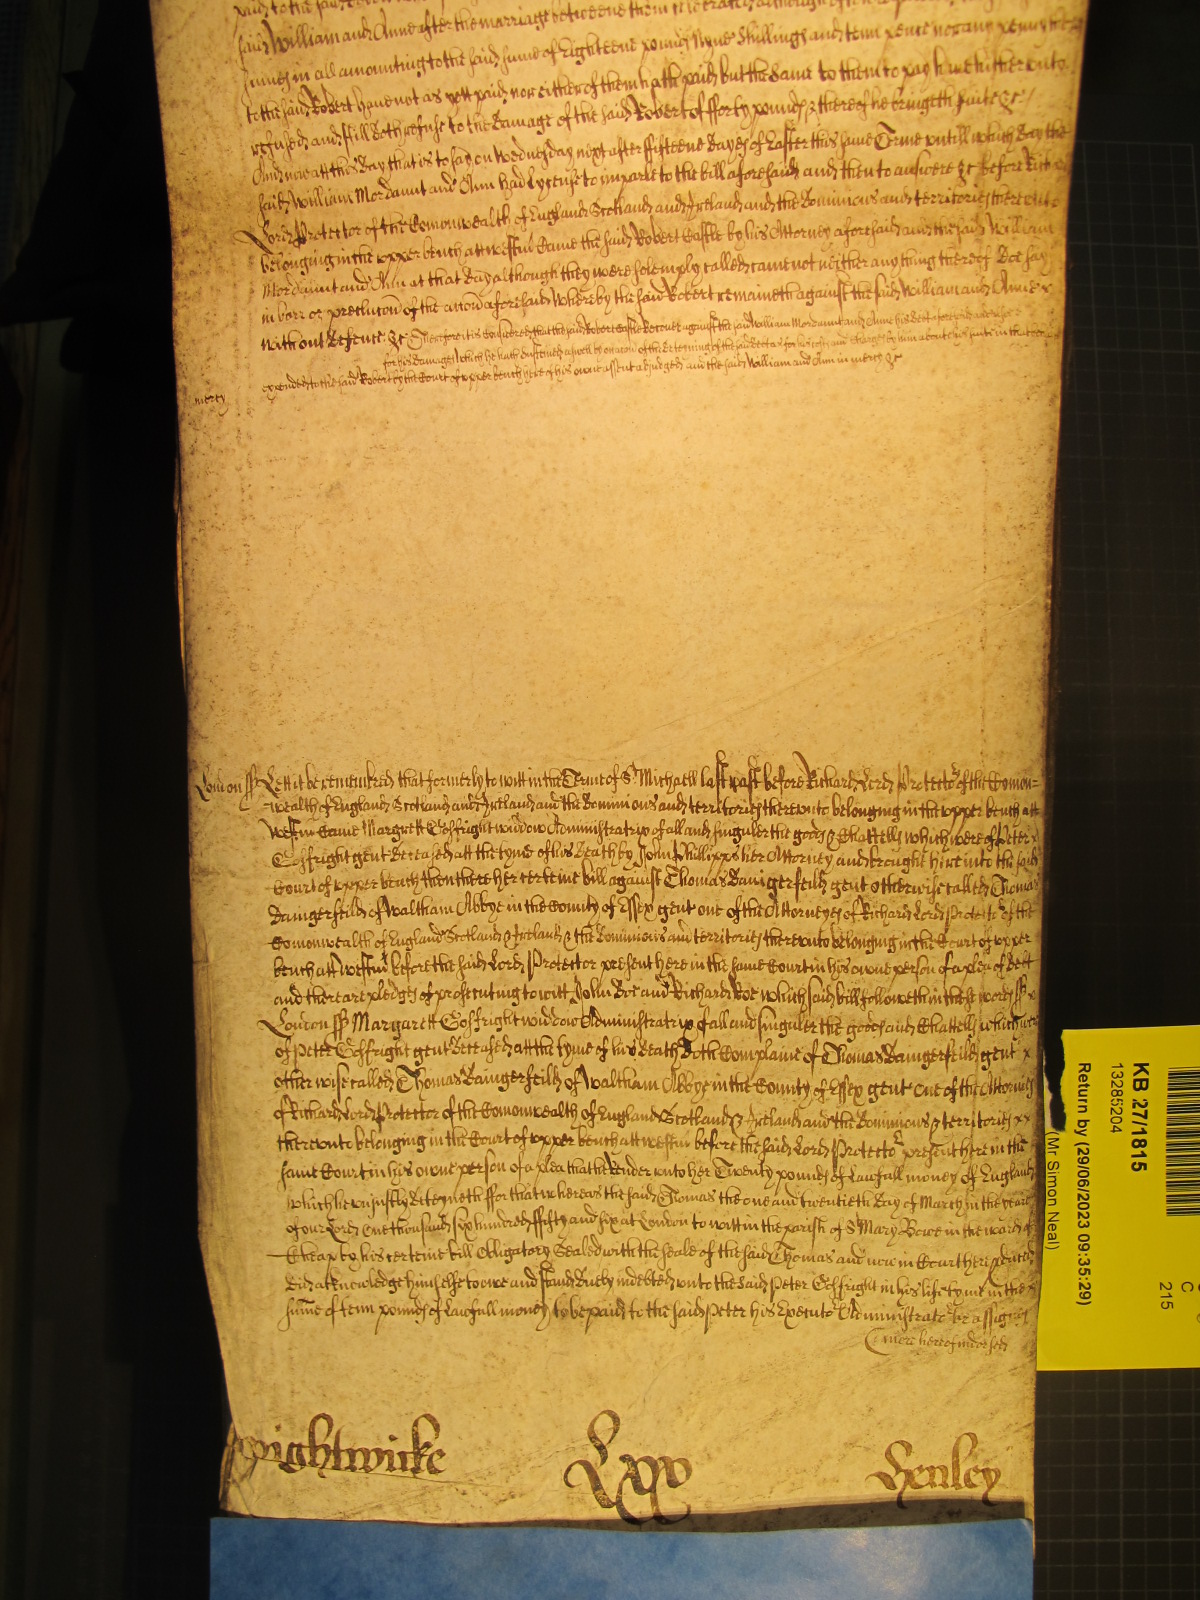 said William and Anne after the marriage betweene them
summes in all amounting to the said summe of Eighteene pounds Nyne shillings and tenn pence nor any penny thereof
to the said Robert have not as yett paid nor either of them hath paid but the same to them to pay have hitherunto
refused and still doth refuse to the damage of the said Robert of fforty pounds & thereof he bringeth suite &c
And now att this day that is to say on Wednesday next after fifteene dayes of Easter this same Terme untill which day the
said William Mordaunt and Ann had lycense to imparle to the bill aforesaid and then to answere &c before Richard
Lord Protector of the Comonwealth of England Scotland and Ireland and the Dominions and territories thereunto
belonging in the upper bench att Westm Came the said Robert Castle by his Attorney aforesaid and the said William
Mordaunt and Ann at that day although they were solemply called came not neither any thing thereof doe say
in barr or preclusion of the accon aforesaid Whereby the said Robert remaineth against the said William and Anne x
without defence &c Therefore it is Considered that the said Robert Castle Recover against the said William Mordaunt and Anne his debt aforesaid
for his damages which he hath susteined aswell by occacon of the deteining of the said debt as for his costs and charges by him about his suite in that
expended to the said Robert by the Court of upper bench here of his owne assent adjudged and the said William and Ann in mercy &c
mercy
London ss Lett it be remembred that formerly to witt in the Terme of St Michaell last past before Richard Lord Protector of the Comon-
-wealth of England Scotland and Ireland and the Dominions and territories thereunto belonging in the upper bench att
Westm Came Margrett Gosfright widdow Administratrix of all and singuler the goods & Chattells which were of Peter x
Gosfright gent deceased att the tyme of his death by John Phillipps her Attorney and brought here into the said
Court of upper bench then there her certeine bill against Thomas Daingerfeild gent otherwise called Thomas
Daingerfeild of Waltham Abbye in the County of Essex gent one of the Attorneyes of Richard Lord Protector of the
Comonwealth of England Scotland & Ireland & the Dominions and territories thereunto belonging in the Court of upper
bench att Westm before the said Lord Protector present here in the same Court in his owne person of a plea of debt
and there are pledges of prosecuting to witt John Doe and Richard Roe which said bill followeth in these words ss
London ss Margarett Gosfright widdow Administratrix of all and singuler the goods and Chattells which were
of Peter Gosfright gent deceased att the tyme of his death doth Complaine of Thomas Daingerfeild gent x
otherwise called Thomas Daingerfeild of Waltham Abbye in the County of Essex gent one of the Attorneyes
of Richard Lord Protector of the Comonwealth of England Scotland & Ireland and the Dominions & territories xx
thereunto belonging in the Court of upper bench att westm before the said Lord Protector present here in the
same Court in his owne person of a plea that he Render unto her Twenty pounds of Lawfull money of England
which he unjustly deteyneth ffor that whereas the said Thomas the one and twentieth day of March in the yeare
of our Lord One thousand six hundred ffifty and six at London to witt in the parish of St Mary Bowe in the ward of
Cheap by his certeine bill Obligatory Sealed with the seale of the said Thomas and now in Court here produced
did acknowledge himselfe to owe and stand duely indebted unto the said Peter Gosfright in his life tyme in the
sume of tenn pounds of Lawfull money to be paid to the said peter his Executor Administrator or assignes
more hereof indorsed
Wightwicke
Lxxv
Henley
KB 27/1815
13285204
Return by (29/06/2023 09:35:29)
(Mr Simon Neal)
C
215